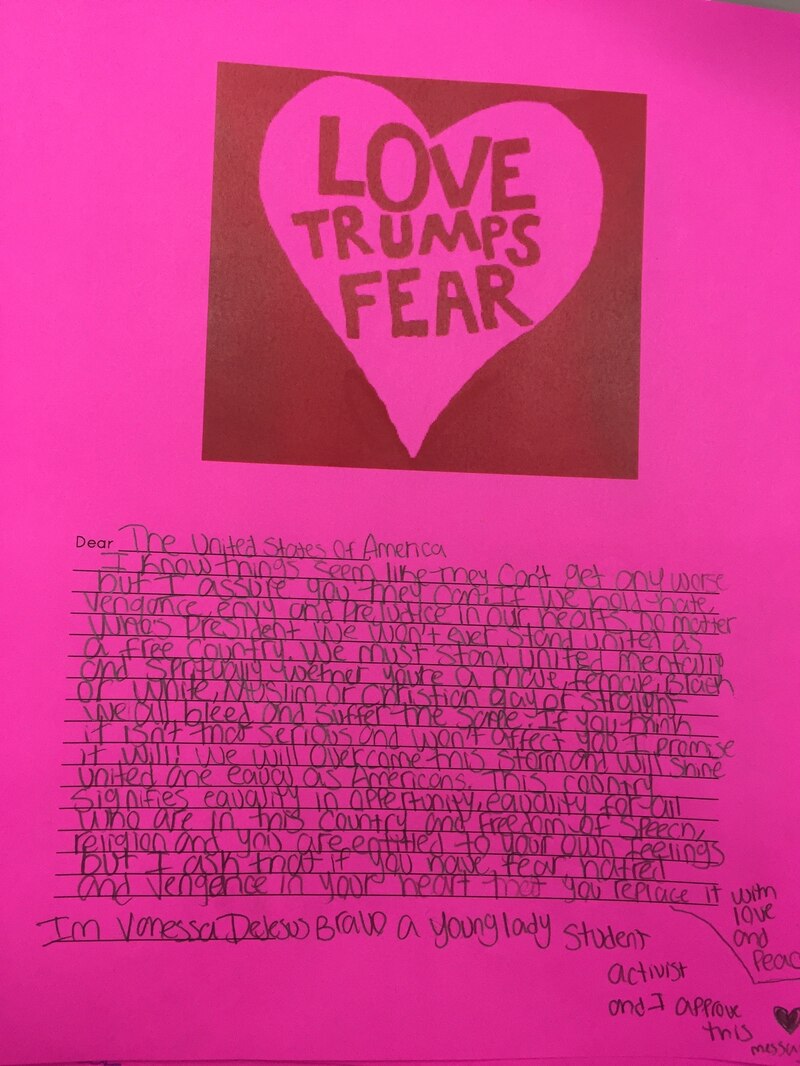 LOVE
TRUMPS
FEAR
Dear The United States Of America
I know things seem like they can't get any worse
but I assure you they can. If we hold hate,
Vengance, envy and prejudice in our hearts no matter
Who's President we won't ever stand united as
a free country. We must stand united mentally
and spritually wether you're a male, female, Black
or White, Muslim or christian gay or straight
We all bleed and suffer the same. If you think
it isn't that serious and won't affect you I promise
it will! We will overcome this storm and will shine
united and equal as Americans. This country
signifies equality in oppertunity, equality for all
who are in this country and freedom of speech,
religion and you are entitled to your own feelings
but I ask that if you have fear hatred
and vengence in your heart that you replace it
with
love
and
Peac
Im Vanessa DeJesus Bravo a young lady student
activist
and I approve
this
messag